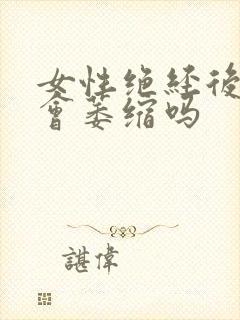 女性绝経後
會萎缩吗
諶偉